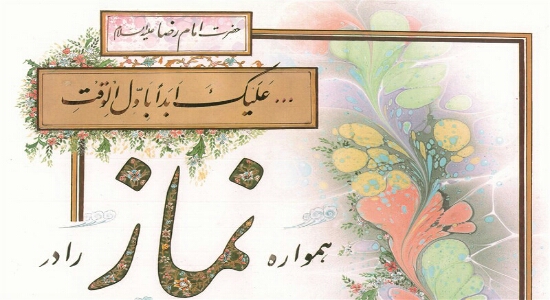 حضرت امام رضا علیه‌السلام
... عَلَیْکَ اَبَداً بِاَوَّلِ الْوَقْتِ
همواره نماز را در